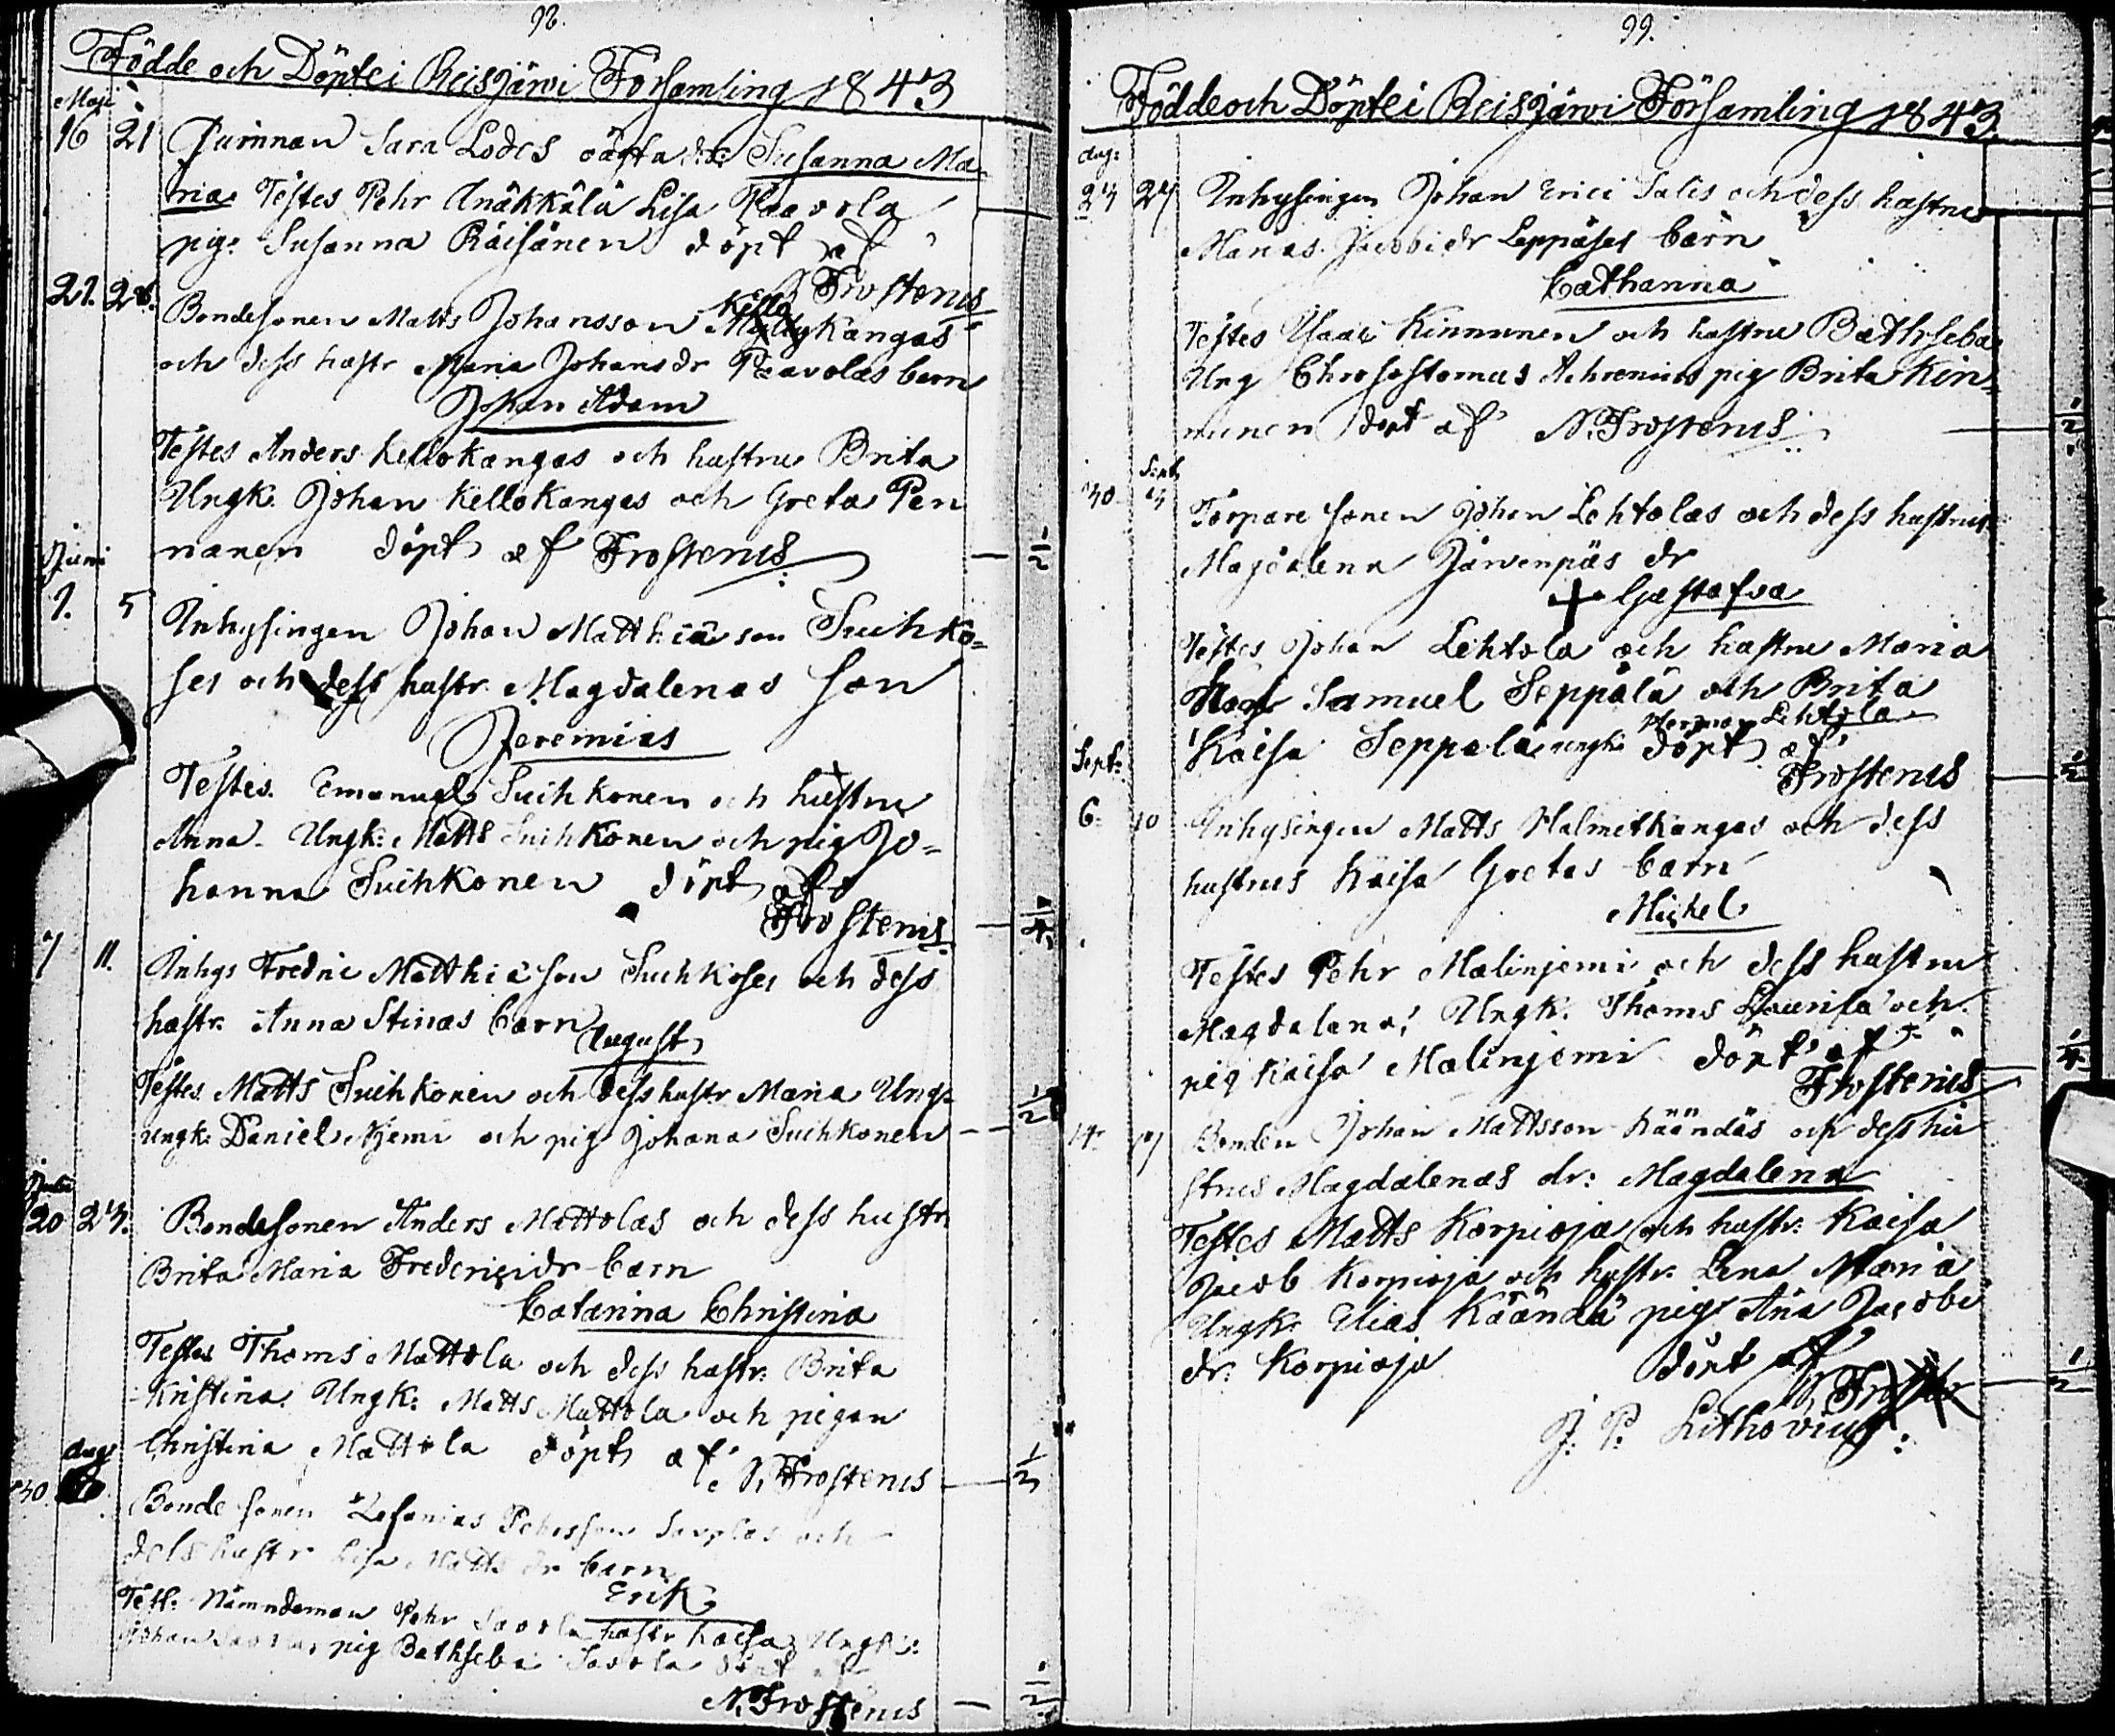 98.
Födde och Döpte i Reisjärwi Församling 1843
Maji
16 21 Qwinnan Sara Lodes oägta dr: Susanna Ma
ria Testes Pehr Knäkkälä Lisa Paavola
pig. Susanna Räisänen döpt af
N Frostenus
21. 28. Bondesonen Matts Johansson Kello kangas
och dess hustr Maria Johansdr Paavolas barn
Johan Adam
Testes Anders Kellokangas och hustru Brita
Ungk. Johan Kellokangas och Greta Pen
nanen döpt af Frostenus 1/2
Juni
1. 5 Inhysingen Johan Matthiæson Suihko=
ses och dess hustr. Magdalenas son
Jeremias
Testes. Emanuel Suihkonen och hustru
Anna Ungk: Matts Suihkonen och pig Jo=
hanna Suihkonen döpt af
Frostenus 1/4
7 11. Inhys Fredric Matthiæson Suihkoses och dess
hustr. Anna Stinas barn
August
Testes Matts Suihkonen och dess hustr Maria Ung
ungk: Daniel Njemi och pig Johana Suihkonen 1/2
20 23. Bondesonen Anders Mattolas och dess hustr
Brita Maria Fredericidr barn
Catarina Christina
Testes Thoms Mattola och dess hustr. Brita
Kristina Ungk: Matts Mattola och pigan
Christina Mattola döpt af N. Frostenus 1/2
Aug
30 Bonde sonen Zefanias Pehrsson Savolas och
dess hustr Lisa Matts dr barn
Erik
Test. Nämndeman Pehr Savola hustr Kaisa Ungk:
Johan Savola, pig Bathseba Savola döpt af
N. Frostenus 1/2
99.
Födde och Döpte i Reisjärwi Församling 1843.
Aug:
23 27 Inhysingen Johan Erici Salis och dess hustrus
Marias Jacobidr Leppäses barn
Catharina
Testes Isaac Kinnunen och hustru Bathseba
Ung Chrosostomus Achrenius pig Brita Kin=
nunen döpt af N. Frostenus 1/2
Sept
30 3 Torpare sonen Johan Lehtolas och dess hustrus
Magdalena Järwenpäs dr
+ Gustafva
Testes Johan Lehtola och hustru Maria
Samuel Seppälä och Brita
Kaisa Seppälä ungk: Herman Lehtola döpt af
Frostenus 1/2
Sept:
6. 10 Inhysingen Matts Halmetkangas och dess
hustrus Kaisa Gretas barn
Michel
Testes Pehr Malinjemi och dess hustru
Magdalena, Ungk. Thoms Laurila och
pig Kaisa Malinjemi döpt af
Frostenus 1/4
14. 17 Bonden Johan Mattsson Käändäs och dess hu
strus Magdalenas dr: Magdalena
Testes Matts Korpioja och hustr. Kaisa
Jacob Korpioja och hustr. Lena Maria
Ungk: Elias Kääntä pig Ana Jacobi
dr. Korpioja döpt af 1/2
J. P. Lithovius.